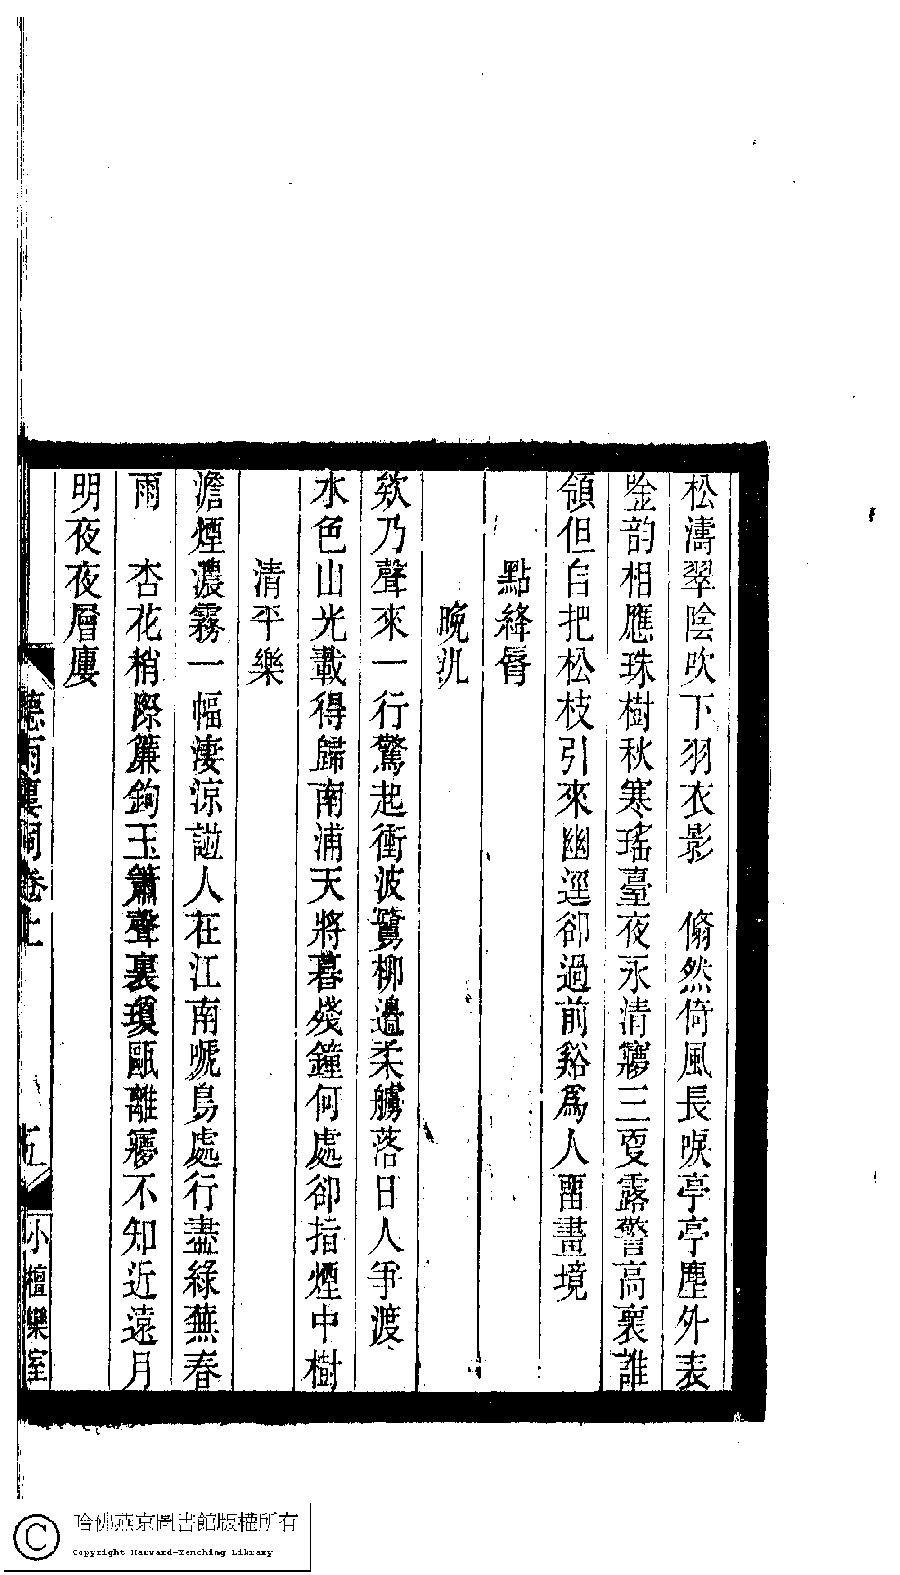 松濤翠陰吹下羽衣影　翛然倚風長唳亭亭塵外表
琻韵相應珠樹秋寒瑤臺夜永清㝱三更露警高襄誰
領但自把松枝引來幽逕卻過前谿爲人畱畫境
點絳脣
晚汎
欸乃聲來一行驚起衝波鷺柳邊柔艣落日人爭渡
水色山光載得歸南浦天將暮殘鐘何處卻指煙中樹
清平樂
澹煙濃霧一幅淒涼謝人在江南唬鳥處行盡綠蕪春
雨　杏花梢際簾鉤玉簫聲裏瓊甌離㝱不知近遠月
明夜夜層廔
聽雨廔詞卷上
五
小檀欒室
哈佛燕京圖書館版權所有
Copyright Harvard-Yenching Library